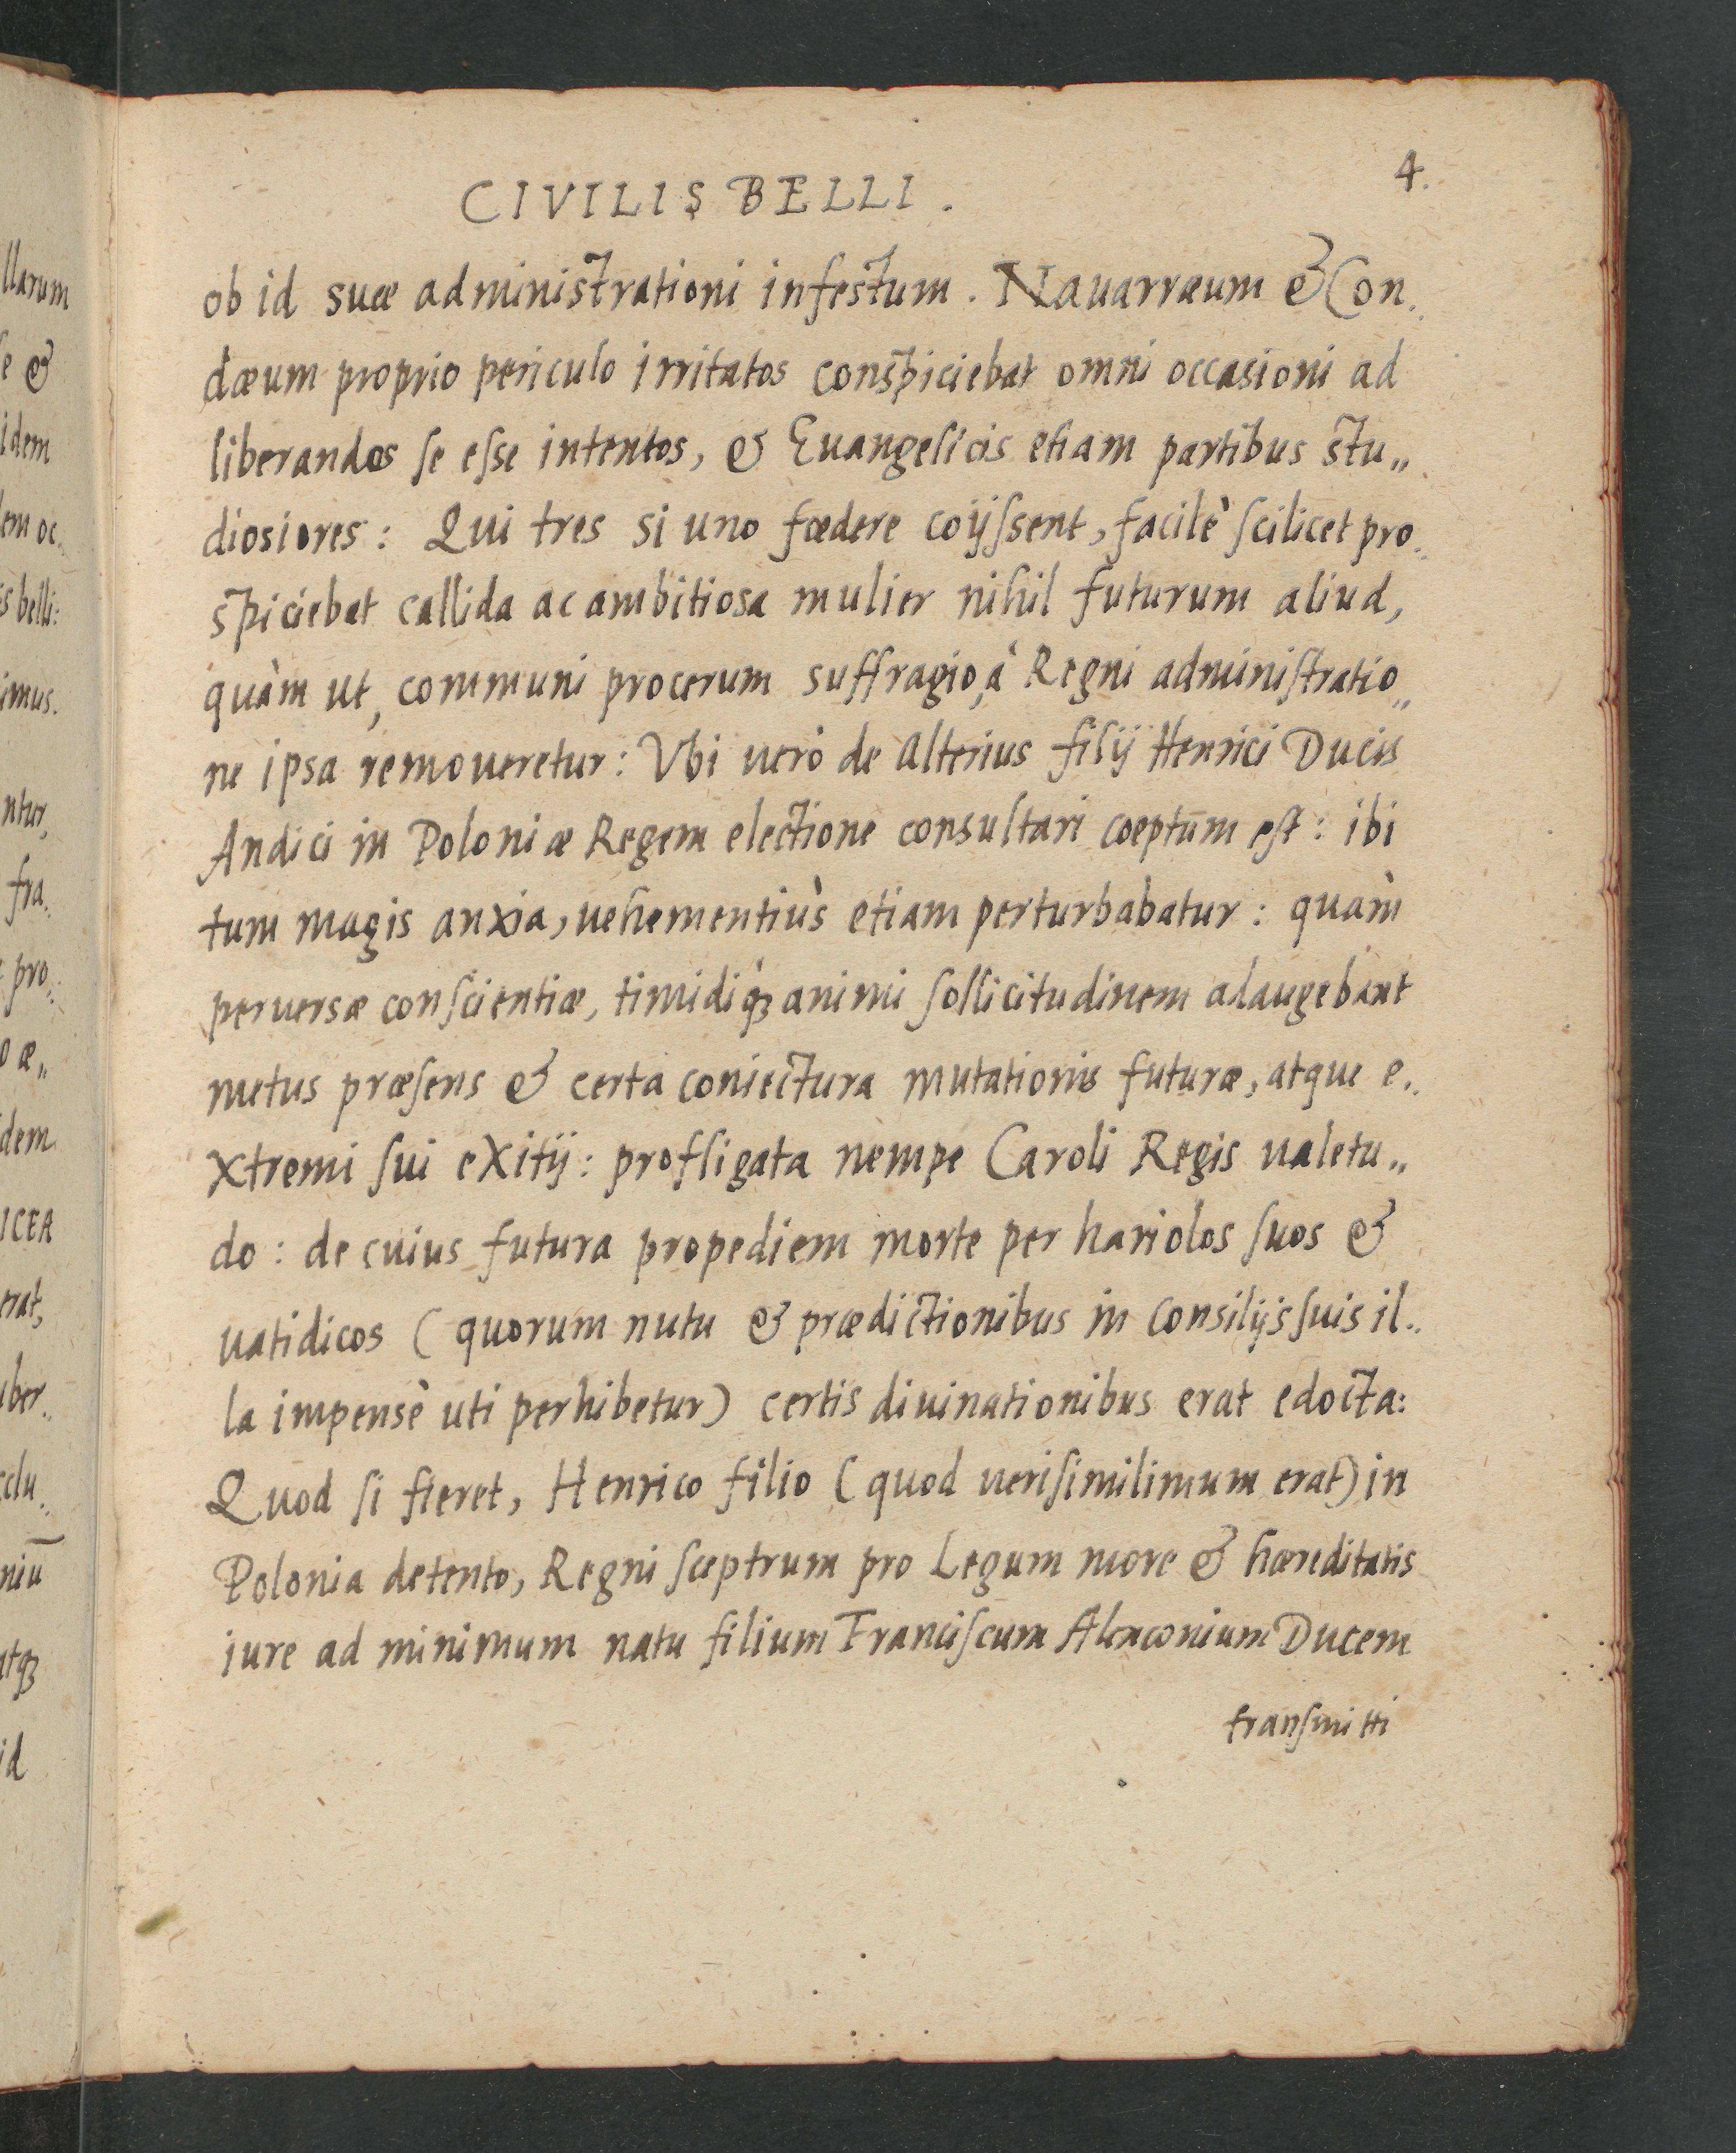 4.
CIVILIS BELLI.
ob id suæ administrationi infestum. Nauarræum & Con„
dæum proprio periculo irritatos conspiciebat omni occasioni ad
liberandos se esse intentos, & Euangelicis etiam partibus stu„
diosiores: Qui tres si uno fœdere coijssent, facilè scilicet pro„
spiciebat callida ac ambitiosa mulier nihil futurum aliud,
quàm ut, communi procerum suffragio, à Regni administratio„
ne ipsa remoueretur: Vbi uerò de alterius filij Henrici Ducis
Andici in Poloniæ Regem electione consultari coeptum est: ibi
tum magis anxia, uehementiùs etiam perturbabatur: quàm
peruersæ conscientiæ, timidiq́ꝫ animi sollicitudinem adaugebant
metus præsens & certa coniectura mutationis futuræ, atque e„
xtremi sui exitij: profligata nempe Caroli Regis ualetu„
do: de cuius futura propediem morte per hariolos suos &
uatidicos (quorum nutu & prædictionibus in consilijs suis il„
la impensè uti perhibetur) certis diuinationibus erat edocta:
Quod si fieret, Henrico filio (quod uerisimilimum erat) in
Polonia detento, Regni sceptrum pro Legum more & hæreditatis
iure ad minimum natu filium Franciscum Alenconium Ducem
transmitti
llarum
se &
idem
lem oc„
is belli:
imus.
ntur,
fra„
pro„
o æ„
dem
ICEA
erat,
uber„
clu„
niū
atqꝫ
id